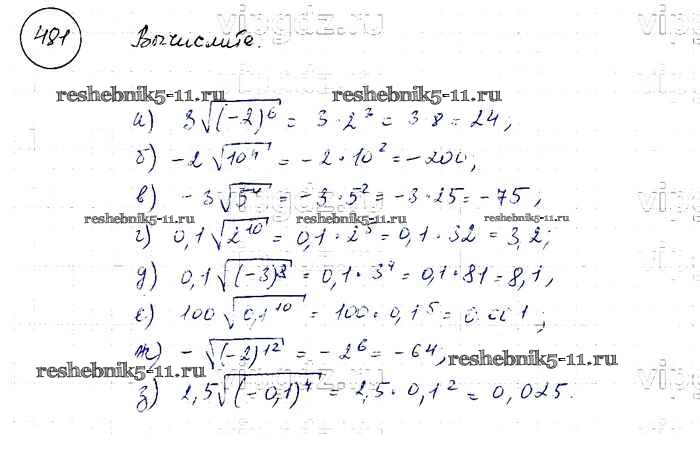 vipgdz.ru
481 Вычислите.
reshebnik5-11.ru reshebnik5-11.ru
а) 3√(-2)⁶ = 3·2³ = 3·8 = 24;
б) -2√10⁴ = -2·10² = -200;
в) -3√5⁴ = -3·5² = -3·25 = -75;
reshebnik5-11.ru reshebnik5-11.ru reshebnik5-11.ru
г) 0,1√2¹⁰ = 0,1·2⁵ = 0,1·32 = 3,2;
д) 0,1√(-3)⁸ = 0,1·3⁴ = 0,1·81 = 8,1,
е) 100√0,1¹⁰ = 100·0,1⁵ = 0,001;
ж) -√(-2)¹² = -2⁶ = -64;
reshebnik5-11.ru reshebnik5-11.ru
з) 2,5√(-0,1)⁴ = 2,5·0,1² = 0,025.